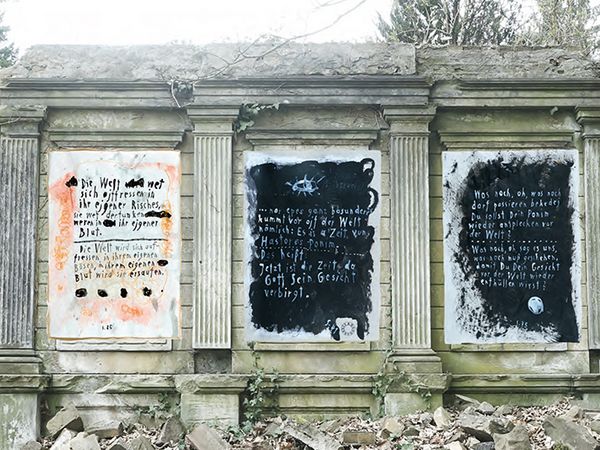 Die, Welt wet
sich offressen in
ihr eigener Risches,
sie wet dertunken
weren in ihr eigener
Blut.
Die Welt wird sich auf-
fressen in ihrem eigenen
Böses, in ihrem eigenen
Blut wird sie ersaufen.
nu-no, epes ganz besunders
kummt vor oif der Welt
nömlich: Es is a Zeit vun
Hastores Ponim
Das heißt
Jetzt ist die Zeit, da
Gott Sein Gesicht
verbirgt.
Was noch, oh was noch
darf passieren, bekedej
Du sollst Dein Ponim
wieder antplecken var
der Welt?
Was noch, oh sog is uns,
was noch muß geschehen,
damit Du Dein Gesicht
der Welt wieder
enthüllen wirst?